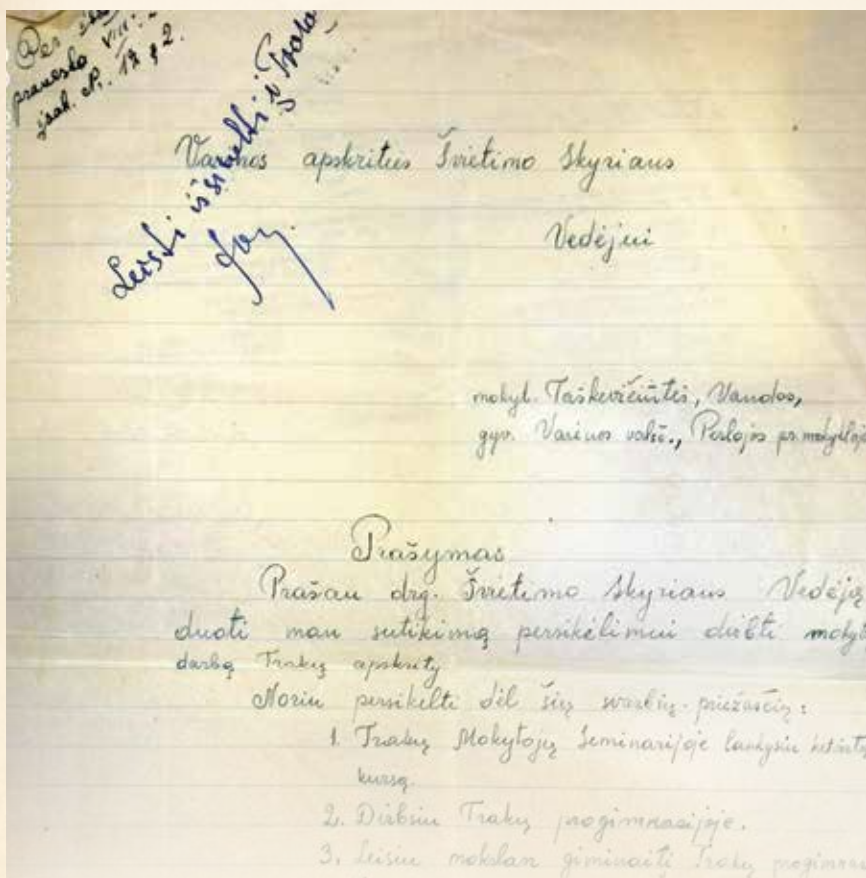 Per
pranešta VIII
įsak. Nr. 1782.
Leisti išsikelti į
Varėnos apskrities Švietimo Skyriaus
Vedėjui
mokyt. Taškevičiūtės, Vandos,
gyv. Varėnos valsč., Perlojos pr. mokykloje
Prašymas
Prašau drg. Švietimo Skyriaus Vedėją
duoti man sutikimą persikėlimui dirbti mokyt
darbą Trakų apskrity
Noriu persikelti dėl šių svarbių priežasčių:
1. Trakų Mokytojų Seminarijoje lankysiu ketvirtą
kursą.
2. Dirbsiu Trakų progimnazijoje.
3. Leisiu mokslan giminaitį Trakų progimnaz